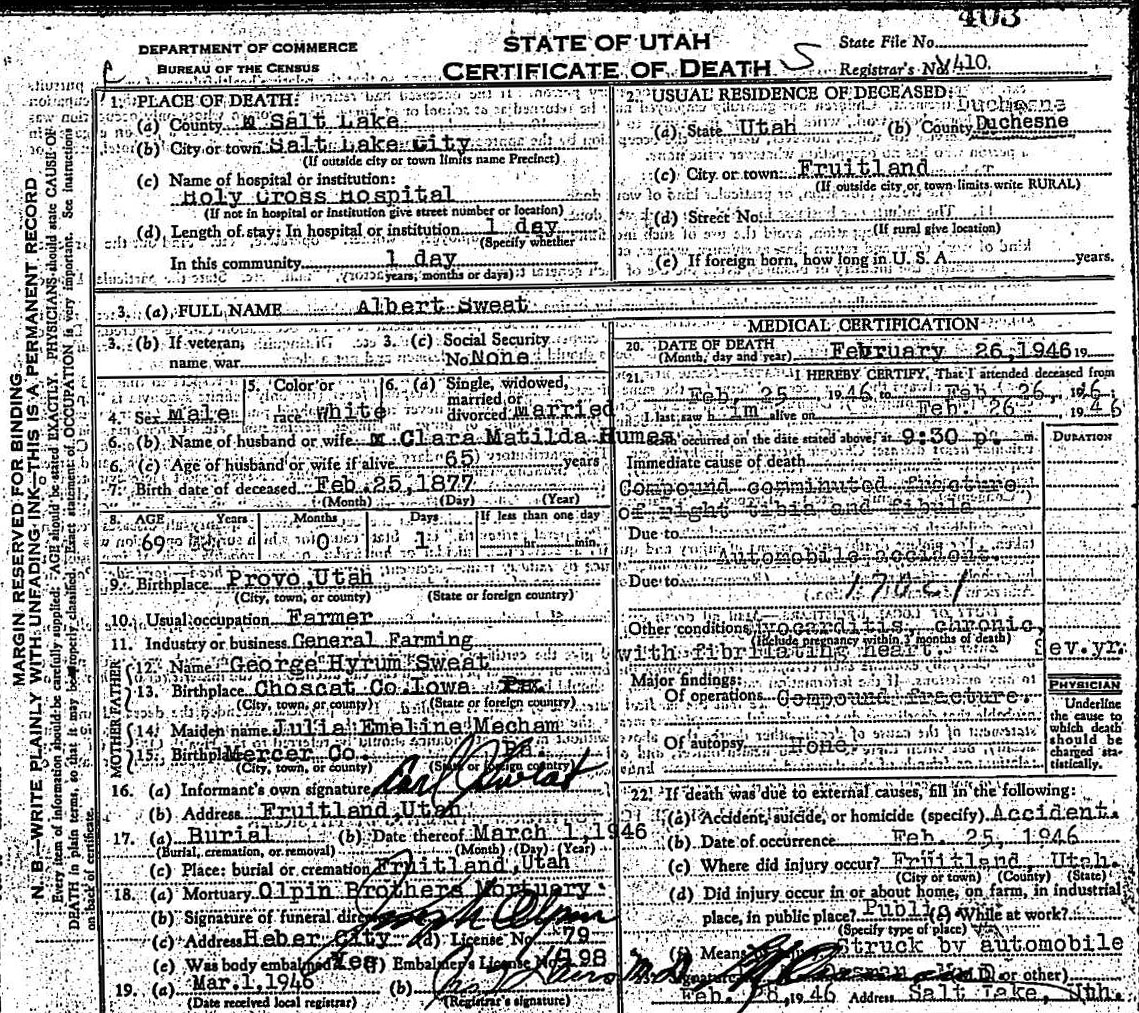 403
DEPARTMENT OF COMMERCE
BUREAU OF THE CENSUS
STATE OF UTAH
CERTIFICATE OF DEATH
State File No.
Registrar's No. 410.
MARGIN RESERVED FOR BINDING
N. B.—WRITE PLAINLY WITH UNFADING INK—THIS IS A PERMANENT RECORD
Every item of information should be carefully supplied. AGE should be stated EXACTLY. PHYSICIANS should state CAUSE OF
DEATH in plain terms, so that it may be properly classified. Exact statement of OCCUPATION is very important. See instructions
on back of certificate.
1. PLACE OF DEATH:
(a) County Salt Lake
(b) City or town Salt Lake City
(If outside city or town limits name Precinct)
(c) Name of hospital or institution:
Holy Cross Hospital
(If not in hospital or institution give street number or location)
(d) Length of stay: In hospital or institution 1 day
(Specify whether
In this community 1 day
years, months or days)
2. USUAL RESIDENCE OF DECEASED:
Duchesne
(a) State Utah (b) County Duchesne
(c) City or town Fruitland
(If outside city or town limits write RURAL)
(d) Street No.
(If rural give location)
(e) If foreign born, how long in U. S. A. years.
3. (a) FULL NAME Albert Sweat
3. (b) If veteran, name war
3. (c) Social Security No. None
4. Sex Male
5. Color or race White
6. (a) Single, widowed, married or divorced married
6. (b) Name of husband or wife Clara Matilda Humes
6. (c) Age of husband or wife if alive 65 years
7. Birth date of deceased Feb. 25, 1877
(Month) (Day) (Year)
8. AGE Years Months Days If less than one day
69 0 1 hr. min.
9. Birthplace Provo Utah
(City, town, or county) (State or foreign country)
10. Usual occupation Farmer
11. Industry or business General Farming
FATHER
12. Name George Hyrum Sweat
13. Birthplace Choscat Co. Iowa
(City, town, or county) (State or foreign country)
MOTHER
14. Maiden name Julia Emeline Mecham
15. Birthplace Mercer Co. Pa.
(City, town, or county) (State or foreign country)
16. (a) Informant's own signature Sweat
(b) Address Fruitland, Utah
17. (a) Burial (b) Date thereof March 1, 1946
(Burial, cremation, or removal) (Month) (Day) (Year)
(c) Place: burial or cremation Fruitland, Utah
18. (a) Mortuary Olpin Brothers Mortuary
(b) Signature of funeral director Olpin
(c) Address Heber City (d) License No. 79
(e) Was body embalmed Yes (f) Embalmer's License No. 198
19. (a) Mar. 1, 1946 (b)
(Date received local registrar) (Registrar's signature)
MEDICAL CERTIFICATION
20. DATE OF DEATH
(Month, day and year) February 26, 1946 19
21. I HEREBY CERTIFY, That I attended deceased from
Feb. 25, 1946 to Feb. 26, 1946,
I last saw him alive on Feb. 26 1946
occurred on the date stated above, at 9:30 p. m.
DURATION
Immediate cause of death
Compound comminuted fracture
of right tibia and fibula
Due to
Automobile accident.
Due to
170c1
Other conditions Myocarditis chronic,
(Include pregnancy within 3 months of death)
with fibrillating heart. Sev. yr.
Major findings:
Of operations Compound fracture.
Of autopsy None
PHYSICIAN
Underline
the cause to
which death
should be
charged sta-
tistically.
22. If death was due to external causes, fill in the following:
(a) Accident, suicide, or homicide (specify) Accident.
(b) Date of occurrence Feb. 25, 1946
(c) Where did injury occur? Fruitland, Utah.
(City or town) (County) (State)
(d) Did injury occur in or about home, on farm, in industrial
place, in public place? Public (e) While at work?
(Specify type of place)
(f) Means of injury Struck by automobile
Signature (M.D. or other)
Feb. 28, 1946 Address Salt Lake, Utah.